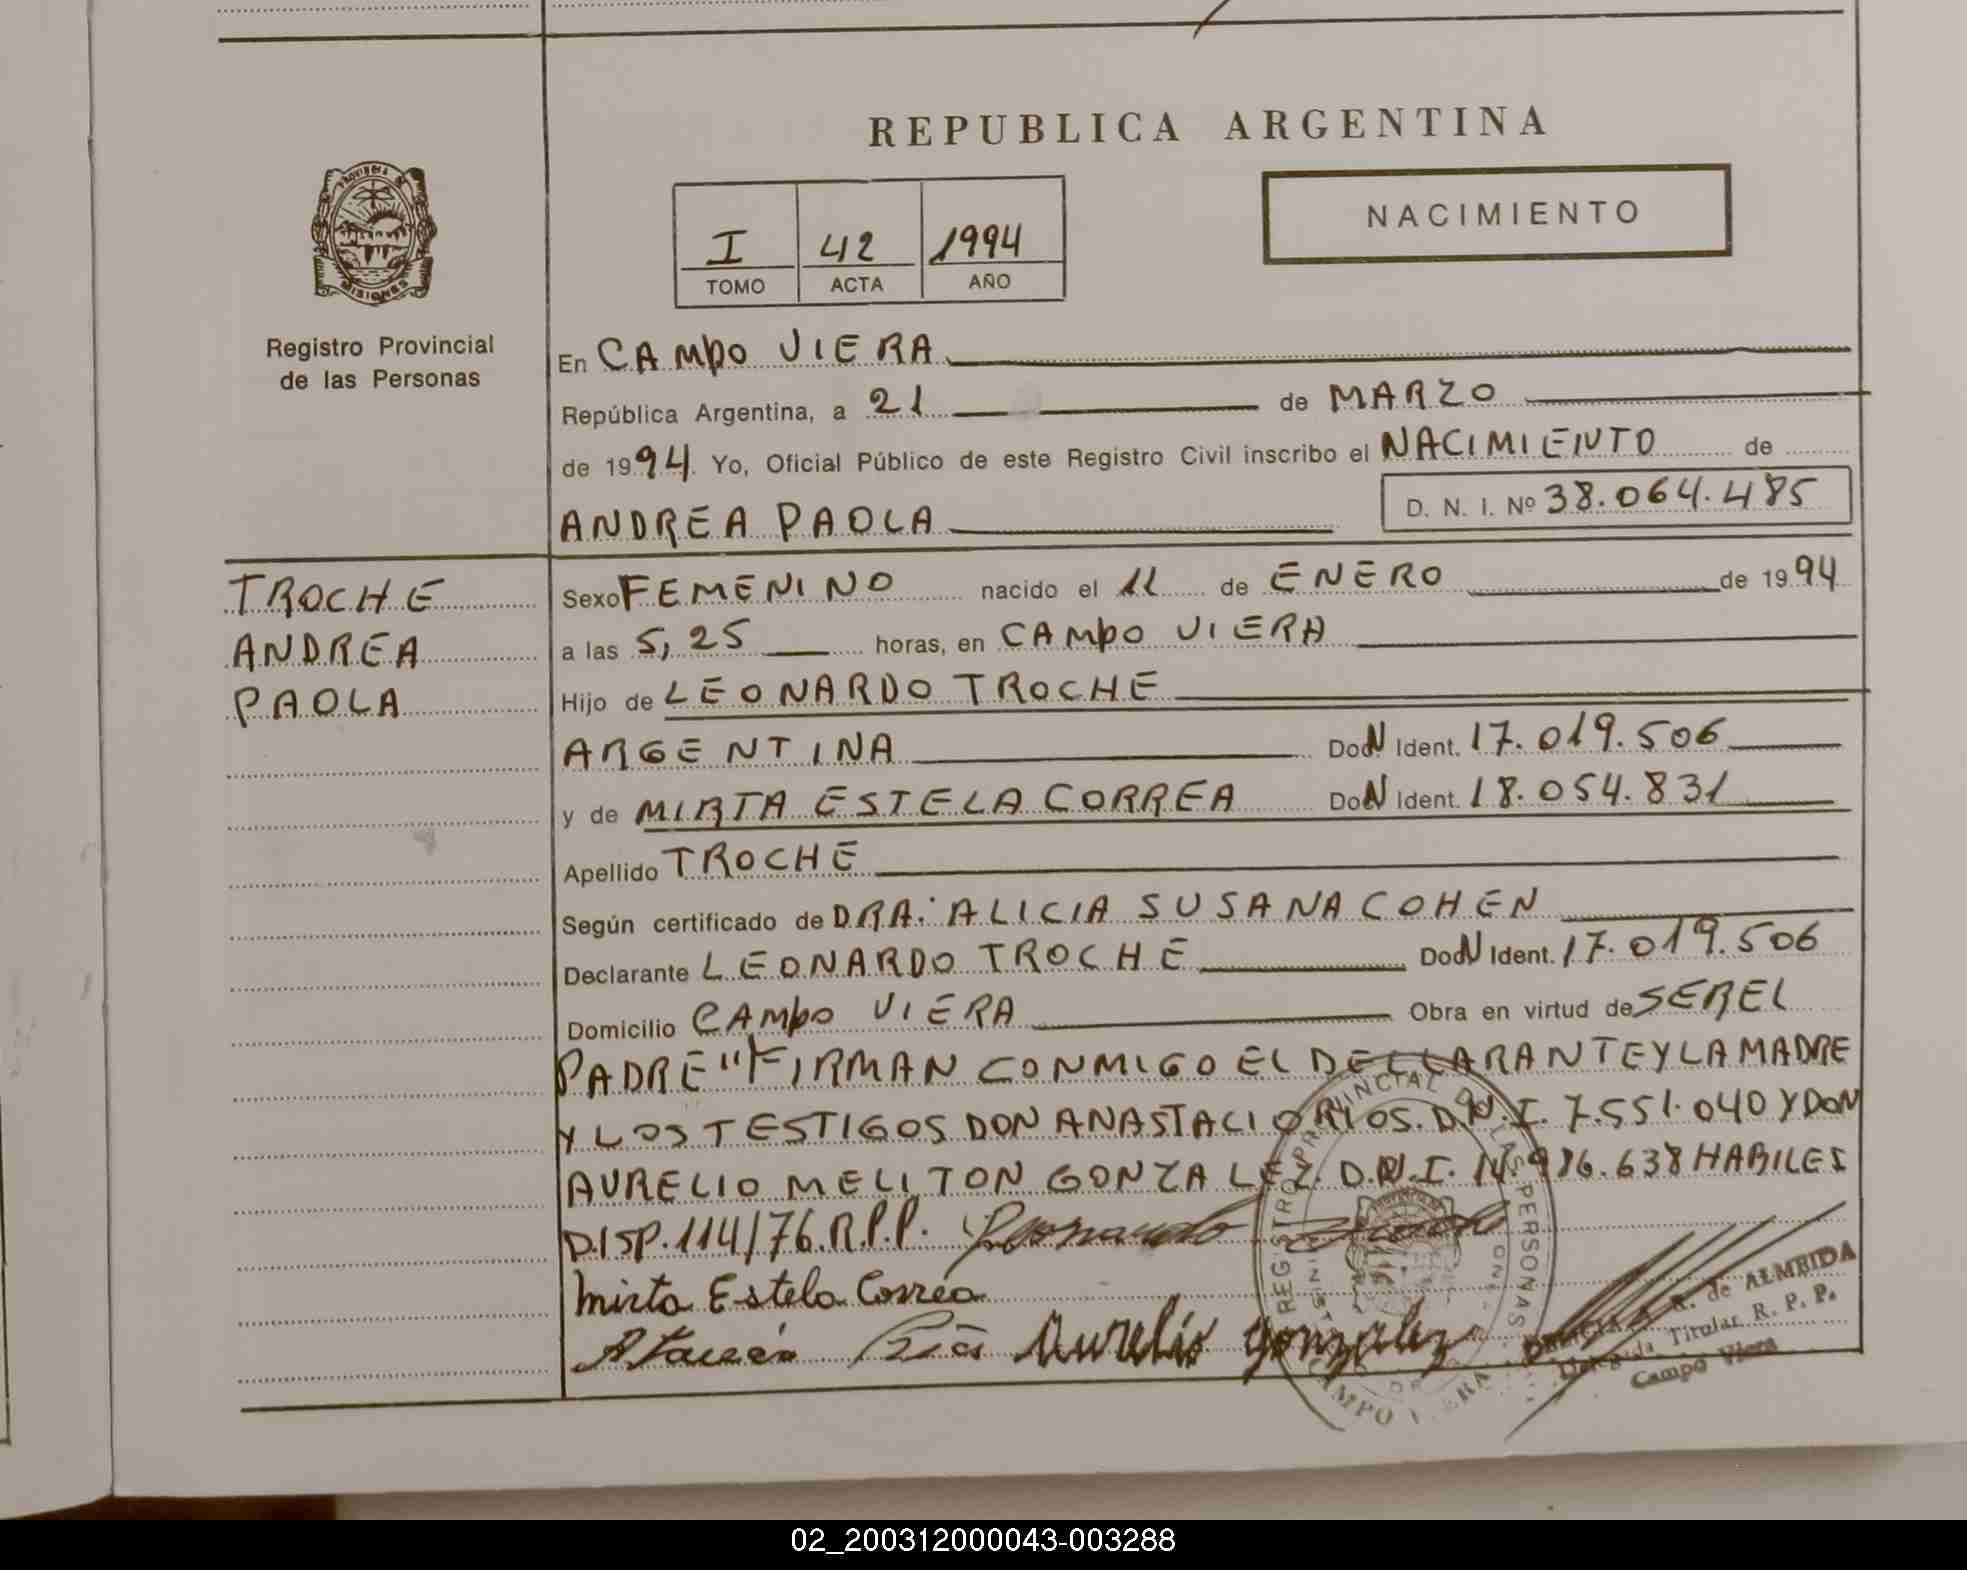 REPUBLICA ARGENTINA
NACIMIENTO
I 42 1994
TOMO ACTA AÑO
PROVINCIA DE MISIONES
Registro Provincial
de las Personas
En CAMPO VIERA
República Argentina, a 21 de MARZO
de 1994. Yo, Oficial Público de este Registro Civil inscribo el NACIMIENTO de
ANDREA PAOLA D. N. I. Nº 38.064.485
TROCHE
ANDREA
PAOLA
Sexo FEMENINO nacido el 11 de ENERO de 1994
a las 5,25 horas, en CAMPO VIERA
Hijo de LEONARDO TROCHE
ARGENTINA DocN Ident. 17.019.506
y de MIRTA ESTELA CORREA DocN Ident. 18.054.831
Apellido TROCHE
Según certificado de DRA. ALICIA SUSANA COHEN
Declarante LEONARDO TROCHE DocN Ident. 17.019.506
Domicilio CAMPO VIERA Obra en virtud de SER EL
PADRE "FIRMAN CONMIGO EL DECLARANTE Y LA MADRE
Y LOS TESTIGOS DON ANASTACIO RIOS. D.N.I. 7.551.040 Y DON
AURELIO MELITON GONZALEZ. D.N.I. 14.986.638 HABILES
DISP. 114/76. R.P.P. Leonardo
Mirta Estela Correa
Rios Aurelio Gonzalez
REGISTRO PROVINCIAL DE LAS PERSONAS
CAMPO VIERA
R. de ALMEIDA
Delegada Titular R. P. P.
Campo Viera
02_200312000043-003288